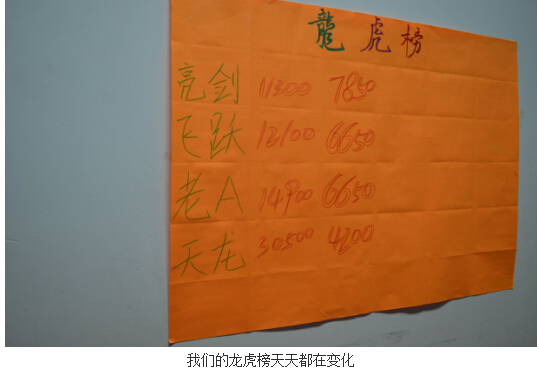 龍虎榜
亮剑 11300 7850
飞跃 12100 6650
老A 14900 6650
天龙 30500 4200
我们的龙虎榜天天都在变化